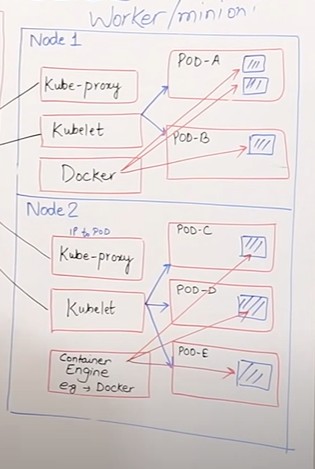 Worker/minion:
Node 1
Kube-proxy
Kubelet
Docker
POD-A
POD-B
Node 2
IP to POD
Kube-proxy
Kubelet
Container
Engine
eg → Docker
POD-C
POD-D
POD-E